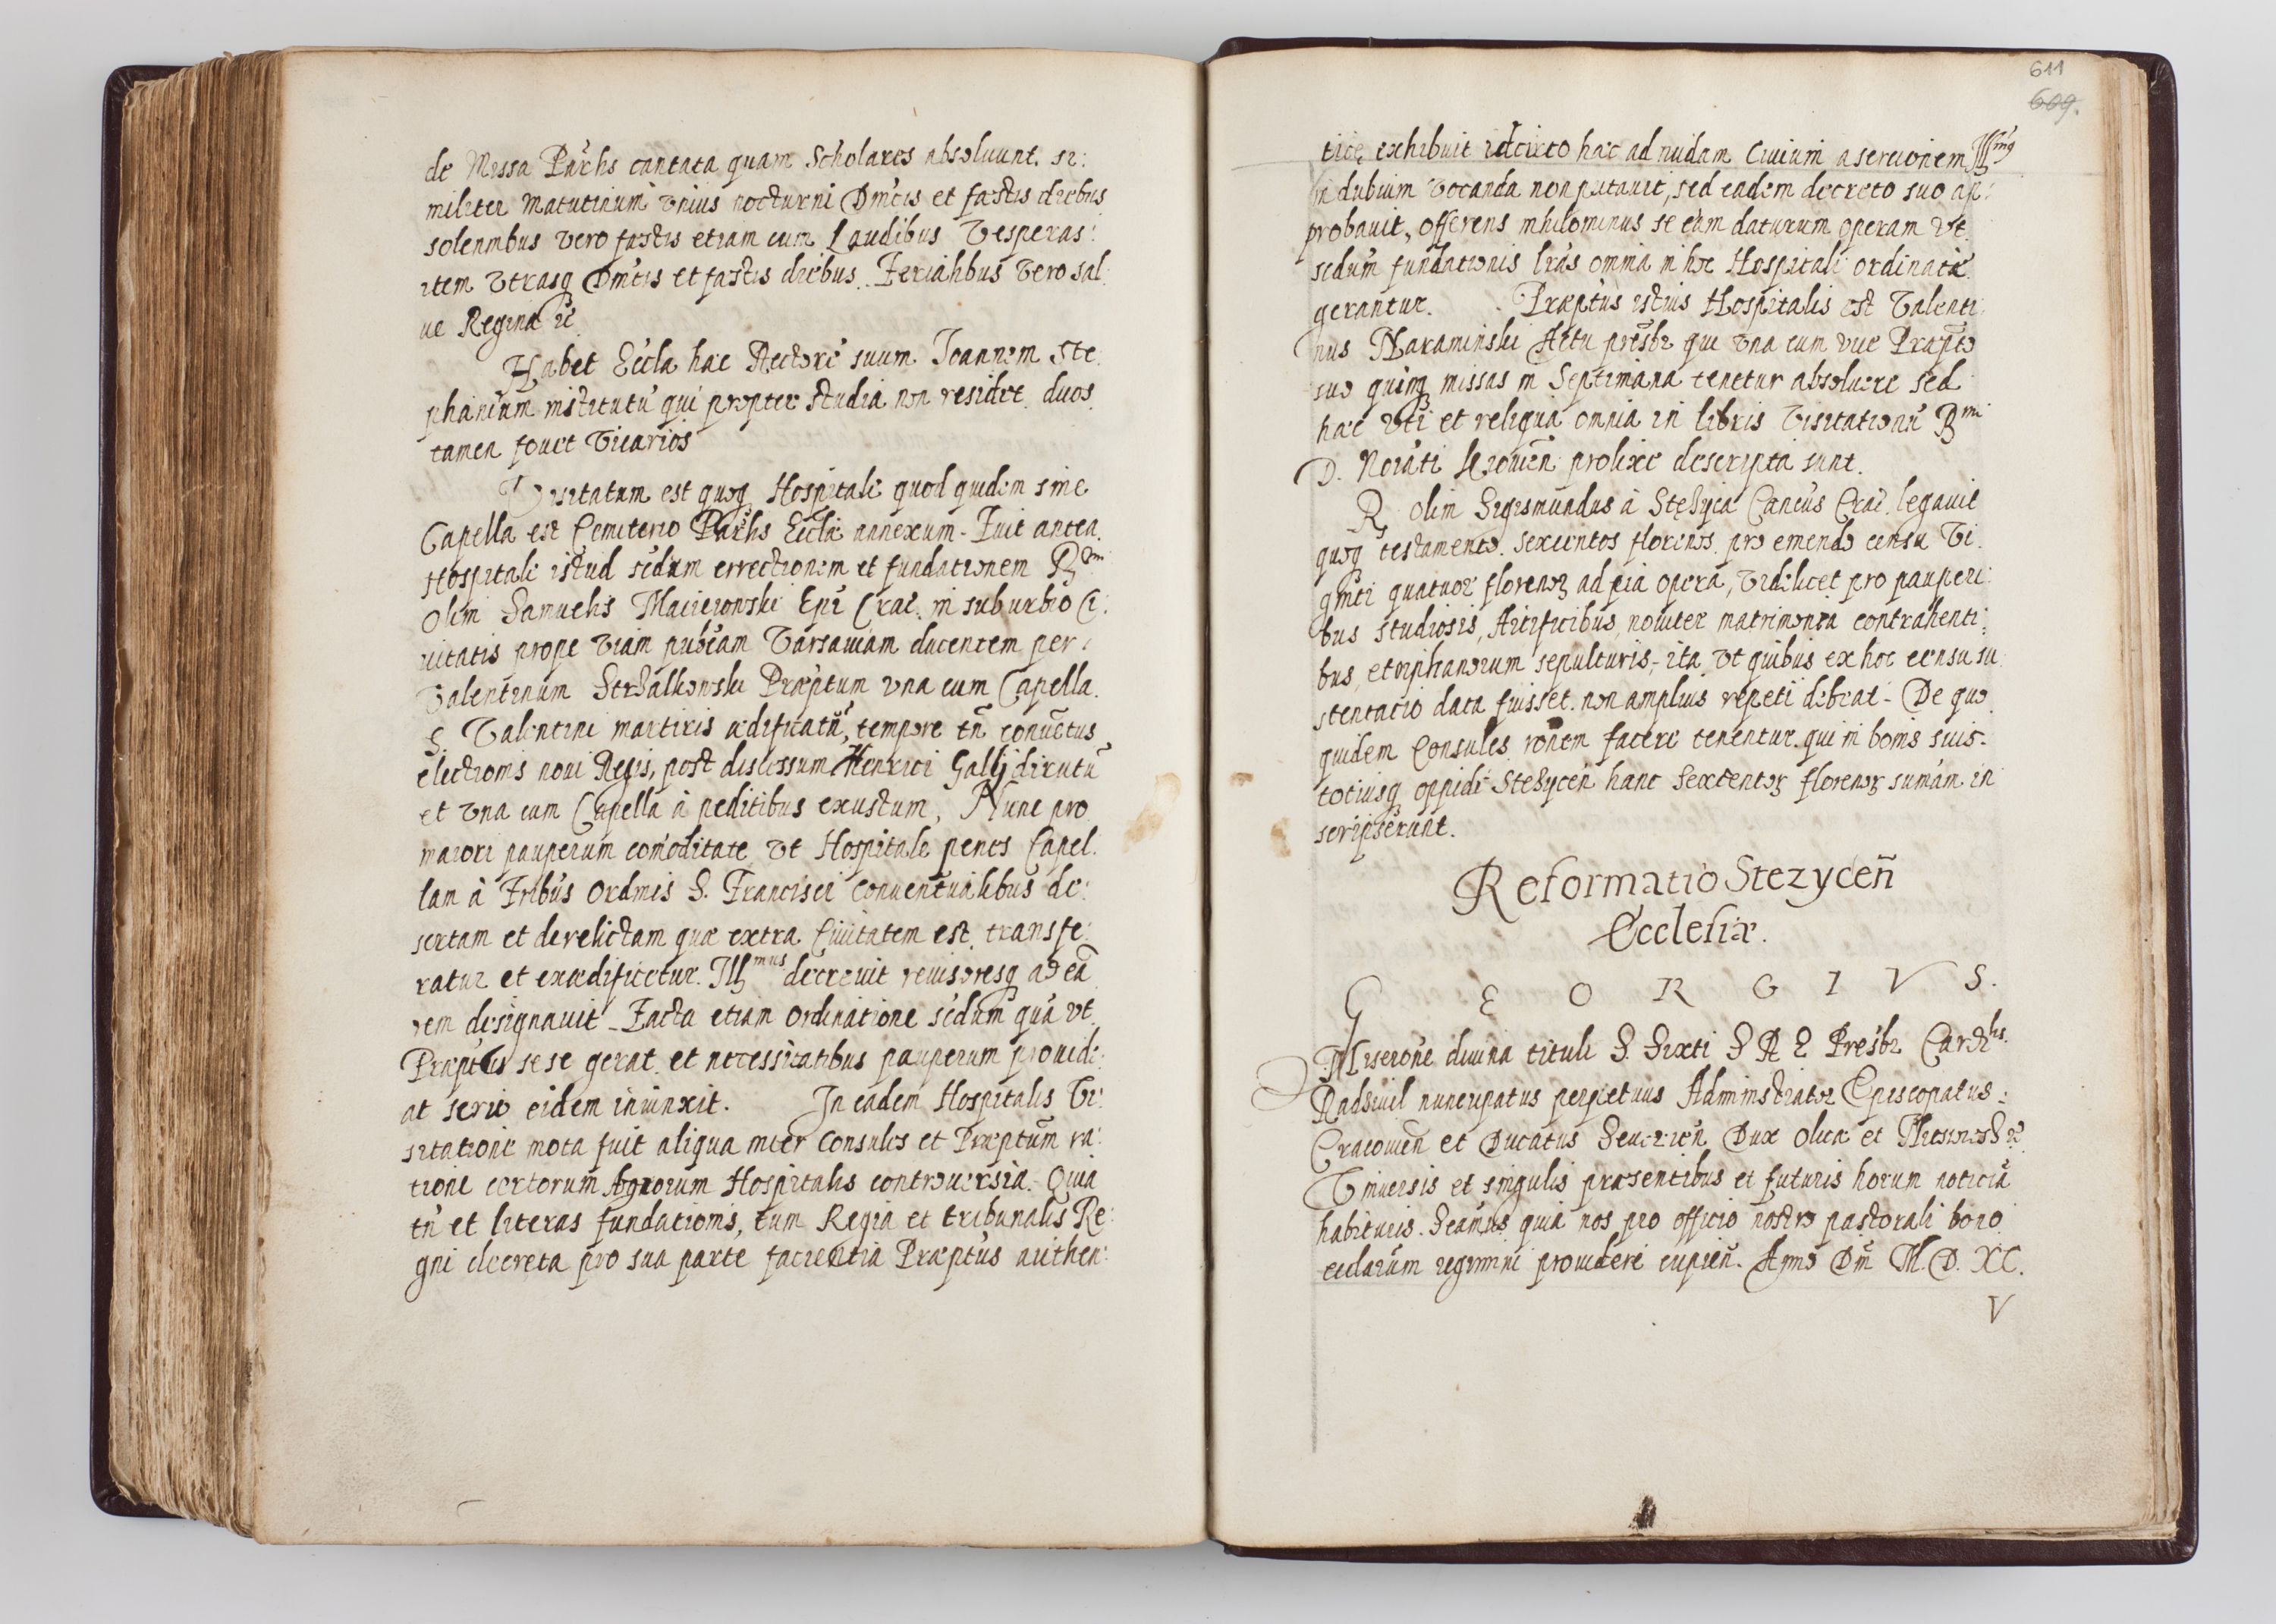 de Missa Par̃lis cantata quam Scholares absoluunt. si:
militer Matutinum vnius nocturni Dm̃cis et festis diebus
solennibus vero festis etiam cum Laudibus Vesperas:
item vtrasq Dm̃cis et festis diebus. Ferialibus vero sal
ue Regina
Habet Eccl̃a hæc Rectorẽ suum Joannem Ste
phanium institutũ qui propter studia non residet duos
tamen fouet Vicarios
Visitatum est quoq Hospitale quod quidem sine
Capella est Cemiterio Par̃lis Eccl̃æ annexum. Fuit antea
Hospitale istud sc̃dum errectionem et fundationem R
olim Samuelis Macieiowski Ep̃i Crac. in suburbio Ci:
uitatis prope viam publicam Varsauiam ducentem per
Valentinum Strzalkowski Præp̃tum vna cum Capella
S Valentini martiris ædificatũ, tempore tñ conuẽtus
electionis noui Regis, post discessum Henrici Gallj dirutũ
et vna cum Capella à peditibus exustum, Nunc pro
maiori pauperum com̃oditate vt Hospitale penes Capel
lam à Fr̃ibus Ordinis S. Francisci Conuentualibus de:
sertam et derelictam quæ extra Ciuitatem est, transfe:
ratur et exædificetur. Ill mus decreuit reuisoresq ad eã
rem designauit. Facta etiam Ordinatione sc̃dum quã vt
Præp̃tus se se gerat et necessitatibus pauperum prouide:
at serio eidem iniunxit. In eadem Hospitalis Vi:
sitatione mota fuit aliqua inter Consules et Præp̃tum ra:
tione certorum Agrorum Hospitalis controuersia. Quia
tñ et literas fundationis, tum Regia et tribunalis Re:
gni decreta pro sua parte facientia Præp̃tus authen:
611
609.
ticè exhibuit idcirco hæc ad nudam Ciuium asertionem Ill
in dubium vocanda non putauit, sed eadem decreto suo ap:
probauit, offerens nihilominus se eam daturum operam vt
sc̃dum fundationis lr̃as omnia in hoc Hospitali ordinatè
gerantur. Præp̃tus istius Hospitalis est Valenti
nus Naraminski presb̃r qui vna cum
suo quinq missas in Septimana tenetur absoluere sed
hæc vti et reliqua omnia in libris Visitationũ R
D. prolixe descripta sunt.
R olim Sigismundus à Stezyca Cancus Crac. legauit
quoq testamento. sexcentos florenos pro emendo censu Vi
quatuor ad pia opera, videlicet pro pauperi:
bus studiosis, Artificibus, nouiter matrimonia contrahenti:
bus, et orphanorum sepulturis, ita vt quibus ex hoc censu su
stentatio data fuisset. non amplius repeti debeat. De quo
quidem Consules rõnem facere tenentur qui in bonis suis
totiusq oppidi Stezycen̄ hanc Sexcentor florenor sum̃am in
scripserunt.
Reformatio Stezycen̄
Ecclesiæ.
G E O R G I V S.
Miserõne diuina tituli S. Sixti S R E Presb̃r Card
Radziuil nuncupatus perpetuus Administrator Episcopatus
Cracouien̄ et Ducatus Seuerien̄ Dux Olicæ et
Vniuersis et singulis præsentibus et futuris horum noticiã
habituris. quia nos pro officio nostro pastorali bono
eccl̃arum regimini prouidere cupien̄. Anno Dñi M. D. XC.
V